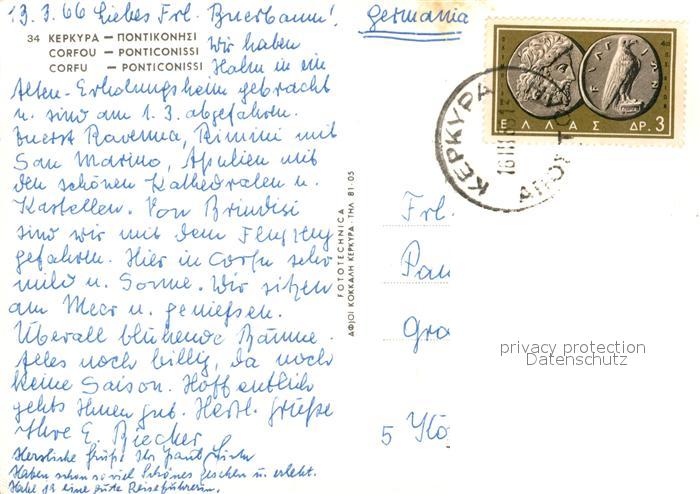 13.3.66 Liebes Frl. Buerbaum!
34 ΚΕΡΚΥΡΑ – ΠΟΝΤΙΚΟΝΗΣΙ
CORFOU – PONTICONISSI
CORFU – PONTICONISSI
Wir haben
Halm in ein
Alten-Erholungsheim gebracht
u. sind am 1.3. abgefahren.
Zuerst Ravenna, Rimini mit
San Marino, Apulien mit
den schönen Kathedralen u.
Kastellen. Von Brindisi
sind wir mit dem
gefahren. Hier in Corfu sehr
mild u. Sonne. Wir sitzen
am Meer u. genießen.
Überall blühende Bäume.
Alles noch billig, da noch
keine Saison. Hoffentlich
gehts Ihnen gut. Herzl. Grüße
Ihre E. Riecker
Herzliche Grüße Ihr
Haben schon so viel Schönes gesehen u. erlebt.
Habe ja eine gute Reiseführerin.
FOTOTECHNICA
ΑΦΙΟΙ ΚΟΚΚΑΛΗ ΚΕΡΚΥΡΑ - ΤΗΛ 81-05
Germania
ΕΛΛΑΣ ΔΡ. 3
ΚΕΡΚΥΡΑ
Frl.
Pau
Gra
5 Kö
privacy protection
Datenschutz